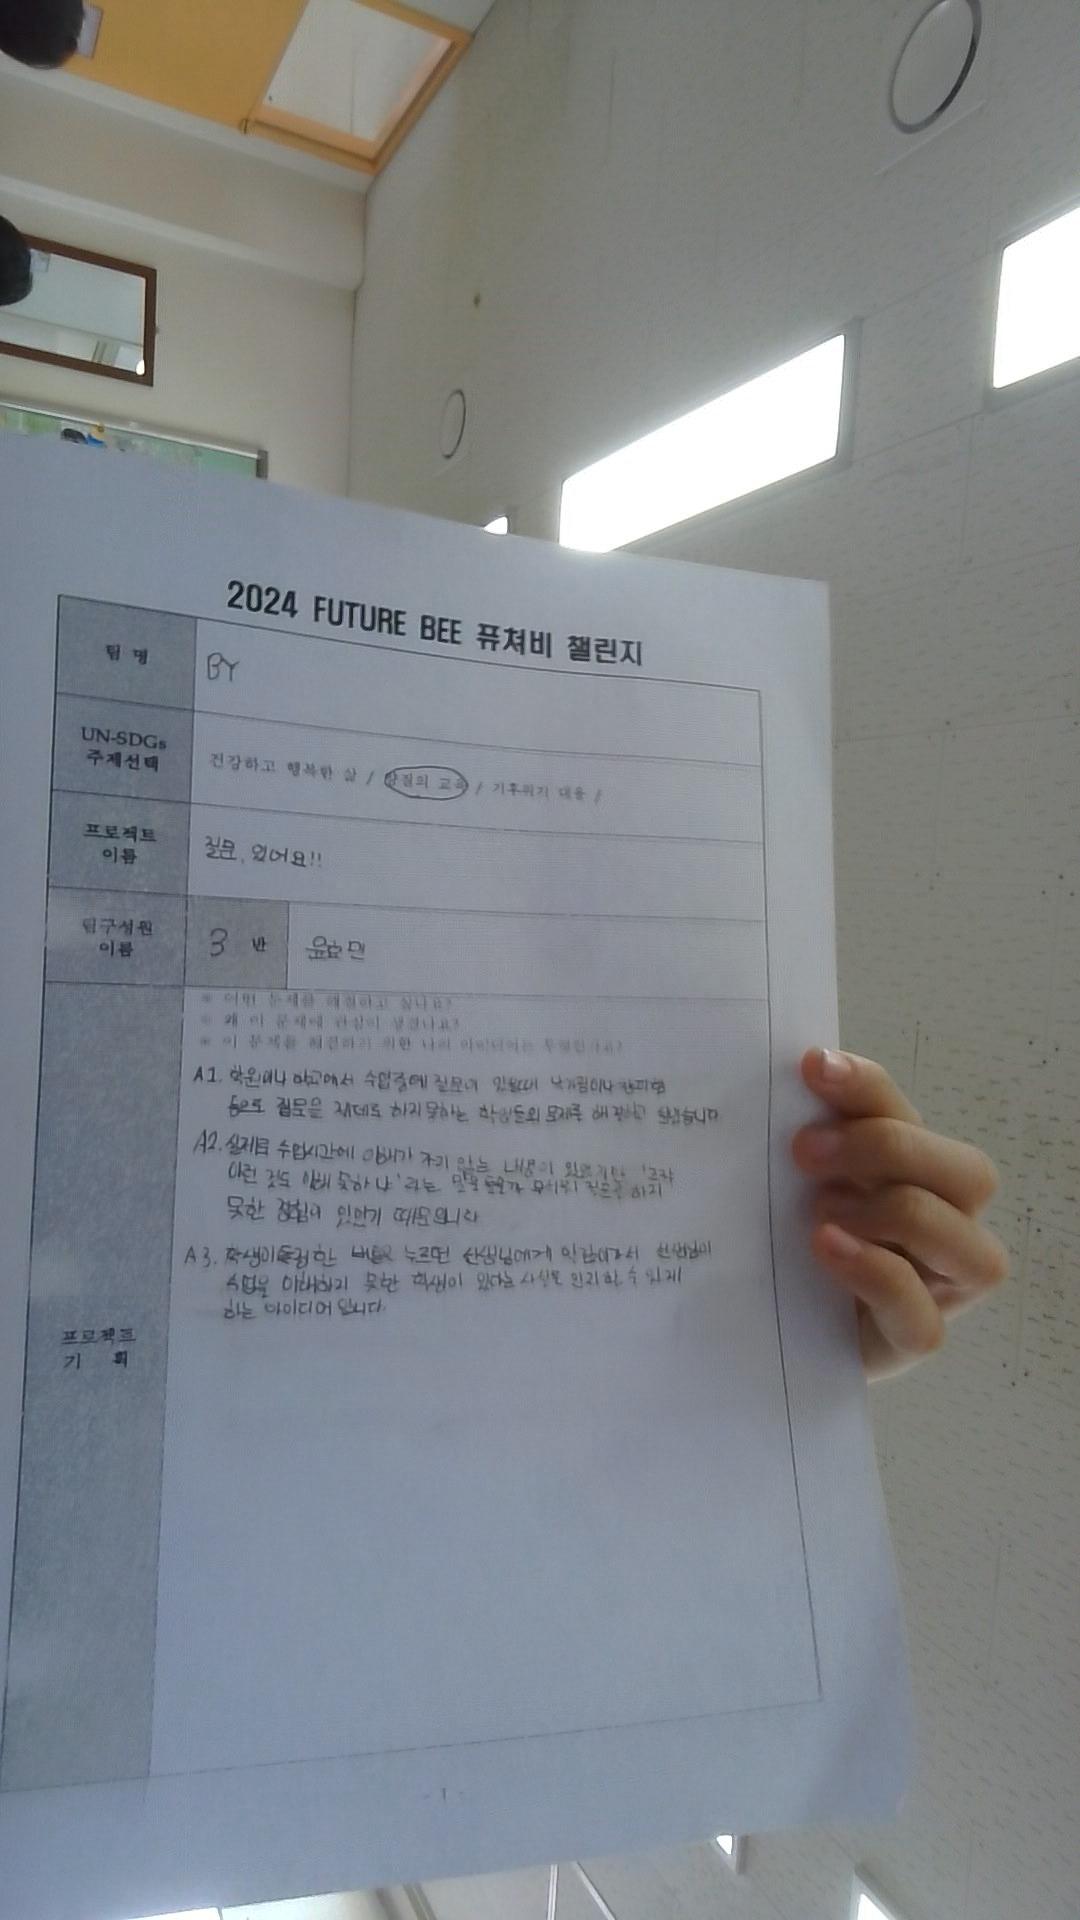 2024 FUTURE BEE 퓨쳐비 챌린지
팀 명
BY
UN-SDGs
주제선택
건강하고 행복한 삶 / 양질의 교육 / 기후위기 대응 /
프로젝트
이름
질문, 있어요!!
팀구성원
이름
3 반
윤효민
※ 어떤 문제를 해결하고 싶나요?
※ 왜 이 문제에 관심이 생겼나요?
※ 이 문제를 해결하기 위한 나의 아이디어는 무엇인가요?
A1. 학원이나 학교에서 수업중에 질문이 있을때 낯가림이나 창피함
등으로 질문을 제대로 하지 못하는 학생들의 문제를 해결하고 싶습니다
A2. 실제로 수업시간에 이해가 가지 않는 내용이 있었지만 '고작
이런 것도 이해 못하냐' 라는 말을 들을까 무서워 질문을 하지
못한 경험이 있었기 때문입니다
A3. 학생이 특정한 버튼을 누르면 선생님에게 알림이가서 선생님이
수업을 이해하지 못한 학생이 있다는 사실을 인지할 수 있게
하는 아이디어 입니다.
프로젝트
기 획
- 1 -